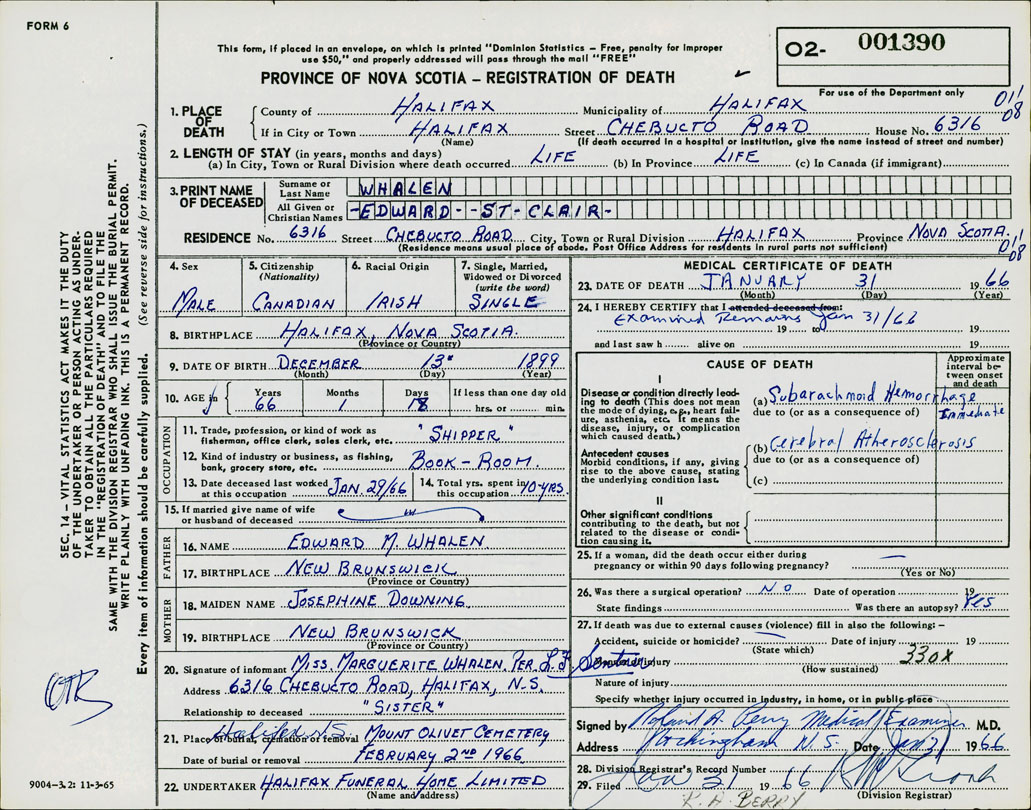 FORM 6
This form, if placed in an envelope, on which is printed "Dominion Statistics – Free, penalty for improper
use $50," and properly addressed will pass through the mail "FREE"
PROVINCE OF NOVA SCOTIA – REGISTRATION OF DEATH
O2- 001390
For use of the Department only
011
08
1. PLACE OF DEATH
County of HALIFAX Municipality of HALIFAX
If in City or Town HALIFAX Street CHEBUCTO ROAD House No. 6316
(Name) (If death occurred in a hospital or institution, give the name instead of street and number)
2. LENGTH OF STAY (in years, months and days)
(a) In City, Town or Rural Division where death occurred LIFE (b) In Province LIFE (c) In Canada (if immigrant)
3. PRINT NAME OF DECEASED
Surname or Last Name WHALEN
All Given or Christian Names -EDWARD--ST-CLAIR-
RESIDENCE No. 6316 Street CHEBUCTO ROAD City, Town or Rural Division HALIFAX Province NOVA SCOTIA.
(Residence means usual place of abode. Post Office Address for residents in rural parts not sufficient)
011
08
4. Sex
MALE
5. Citizenship (Nationality)
CANADIAN
6. Racial Origin
IRISH
7. Single, Married, Widowed or Divorced (write the word)
SINGLE
8. BIRTHPLACE HALIFAX, NOVA SCOTIA.
(Province or Country)
9. DATE OF BIRTH DECEMBER 13" 1899
(Month) (Day) (Year)
10. AGE in Years 66 Months 1 Days 18 If less than one day old hrs. or min.
OCCUPATION
11. Trade, profession, or kind of work as fisherman, office clerk, sales clerk, etc. "SHIPPER"
12. Kind of industry or business, as fishing, bank, grocery store, etc. BOOK-ROOM.
13. Date deceased last worked at this occupation JAN. 29/66
14. Total yrs. spent in this occupation 10-YRS
15. If married give name of wife or husband of deceased
FATHER
16. NAME EDWARD M. WHALEN.
17. BIRTHPLACE NEW BRUNSWICK
(Province or Country)
MOTHER
18. MAIDEN NAME JOSEPHINE DOWNING.
19. BIRTHPLACE NEW BRUNSWICK
(Province or Country)
20. Signature of informant MISS. MARGUERITE WHALEN. PER.
Address 6316 CHEBUCTO ROAD, HALIFAX, N-S.
Relationship to deceased "SISTER"
21. Place of burial, cremation or removal Halifax N.S. MOUNT OLIVET CEMETERY
Date of burial or removal FEBRUARY 2ND 1966
22. UNDERTAKER HALIFAX FUNERAL HOME LIMITED
(Name and address)
MEDICAL CERTIFICATE OF DEATH
23. DATE OF DEATH JANUARY 31 1966
(Month) (Day) (Year)
24. I HEREBY CERTIFY that I attended deceased from:
Examined Remains Jan 31/66
19 to 19
and last saw h alive on 19
CAUSE OF DEATH
Approximate interval between onset and death
I
Disease or condition directly leading to death (This does not mean the mode of dying, e.g., heart failure, asthenia, etc. It means the disease, injury, or complication which caused death.)
(a) Subarachnoid Hemorrhage
due to (or as a consequence of) Immediate
Antecedent causes
Morbid conditions, if any, giving rise to the above cause, stating the underlying condition last.
(b) Cerebral Atherosclerosis
due to (or as a consequence of)
(c)
II
Other significant conditions contributing to the death, but not related to the disease or condition causing it.
25. If a woman, did the death occur either during pregnancy or within 90 days following pregnancy?
(Yes or No)
26. Was there a surgical operation? NO Date of operation 19
State findings Was there an autopsy? Yes
27. If death was due to external causes (violence) fill in also the following: –
Accident, suicide or homicide? Date of injury 19
(State which)
Manner of injury 330X
(How sustained)
Nature of injury
Specify whether injury occurred in industry, in home, or in public place
Signed by Roland A. Perry Medical Examiner M.D.
Address Rockingham N.S. Date Jan 31 1966
28. Division Registrar's Record Number
29. Filed Jan 31 1966
(Division Registrar)
R. A. BERRY
SEC. 14 – VITAL STATISTICS ACT MAKES IT THE DUTY
OF THE UNDERTAKER OR PERSON ACTING AS UNDER-
TAKER TO OBTAIN ALL THE PARTICULARS REQUIRED
IN THE "REGISTRATION OF DEATH" AND TO FILE THE
SAME WITH THE DIVISION REGISTRAR WHO SHALL ISSUE THE BURIAL PERMIT.
WRITE PLAINLY WITH UNFADING INK. THIS IS A PERMANENT RECORD.
Every item of information should be carefully supplied. (See reverse side for instructions.)
9004–3.2: 11-3-65